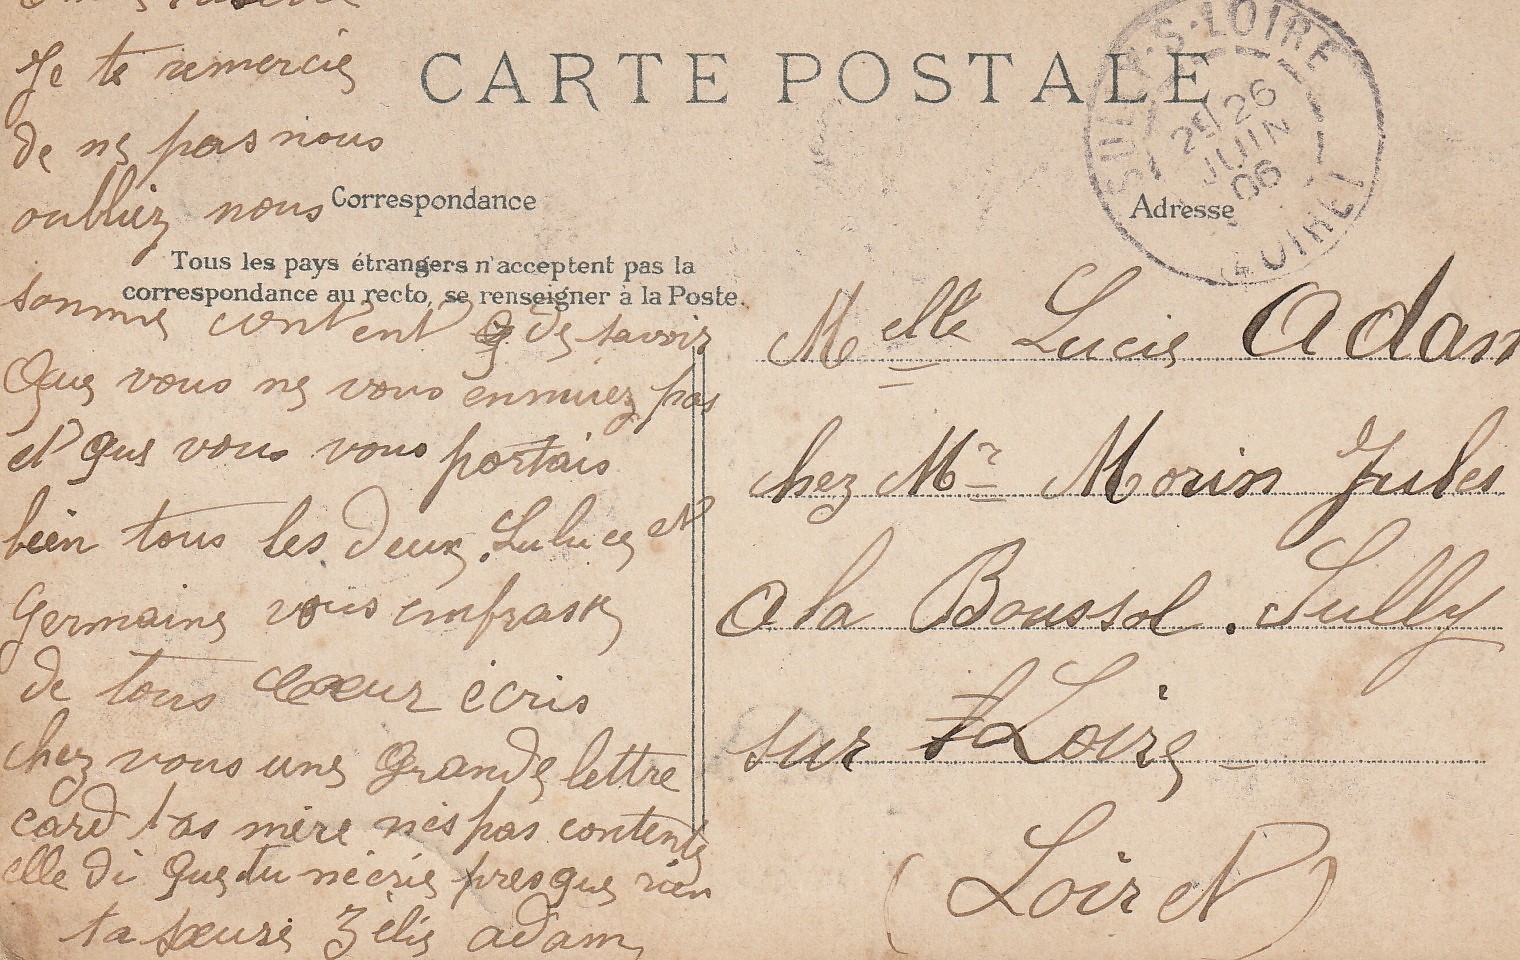 Je te remercie
de ne pas nous
oublier nous
somme content de savoir
Que vous ne vous ennuiez pas
et que vous vous portais
bien tous les deux. Lulu et
Germaine vous embrasse
de tous coeur écris
chez vous une Grande lettre
card tas mère nés pas contente
elle di que tu nécrie presque rien
ta soeure Zélie adam
CARTE POSTALE
Correspondance
Tous les pays étrangers n'acceptent pas la
correspondance au recto, se renseigner à la Poste.
Adresse
SULLY-S-LOIRE
26
JUIN
06
LOIRET
Melle Lucie Adam
chez Mr Morin Jules
a la Boussol. Sully
sur Loire
(Loiret)